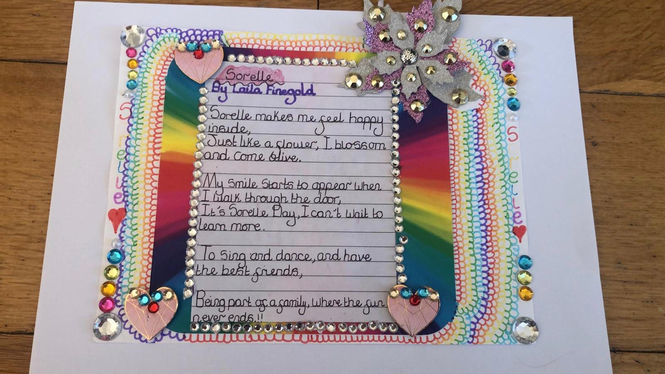 Sorelle
By Laila Finegold
Sorelle makes me feel happy
inside,
Just like a flower, I blossom
and come alive.
My smile starts to appear when
I walk through the door,
It's Sorelle Play, I can't wait to
learn more.
To sing and dance, and have
the best friends,
Being part of a family, where the fun
never ends.!!
Sorelle
Sorelle